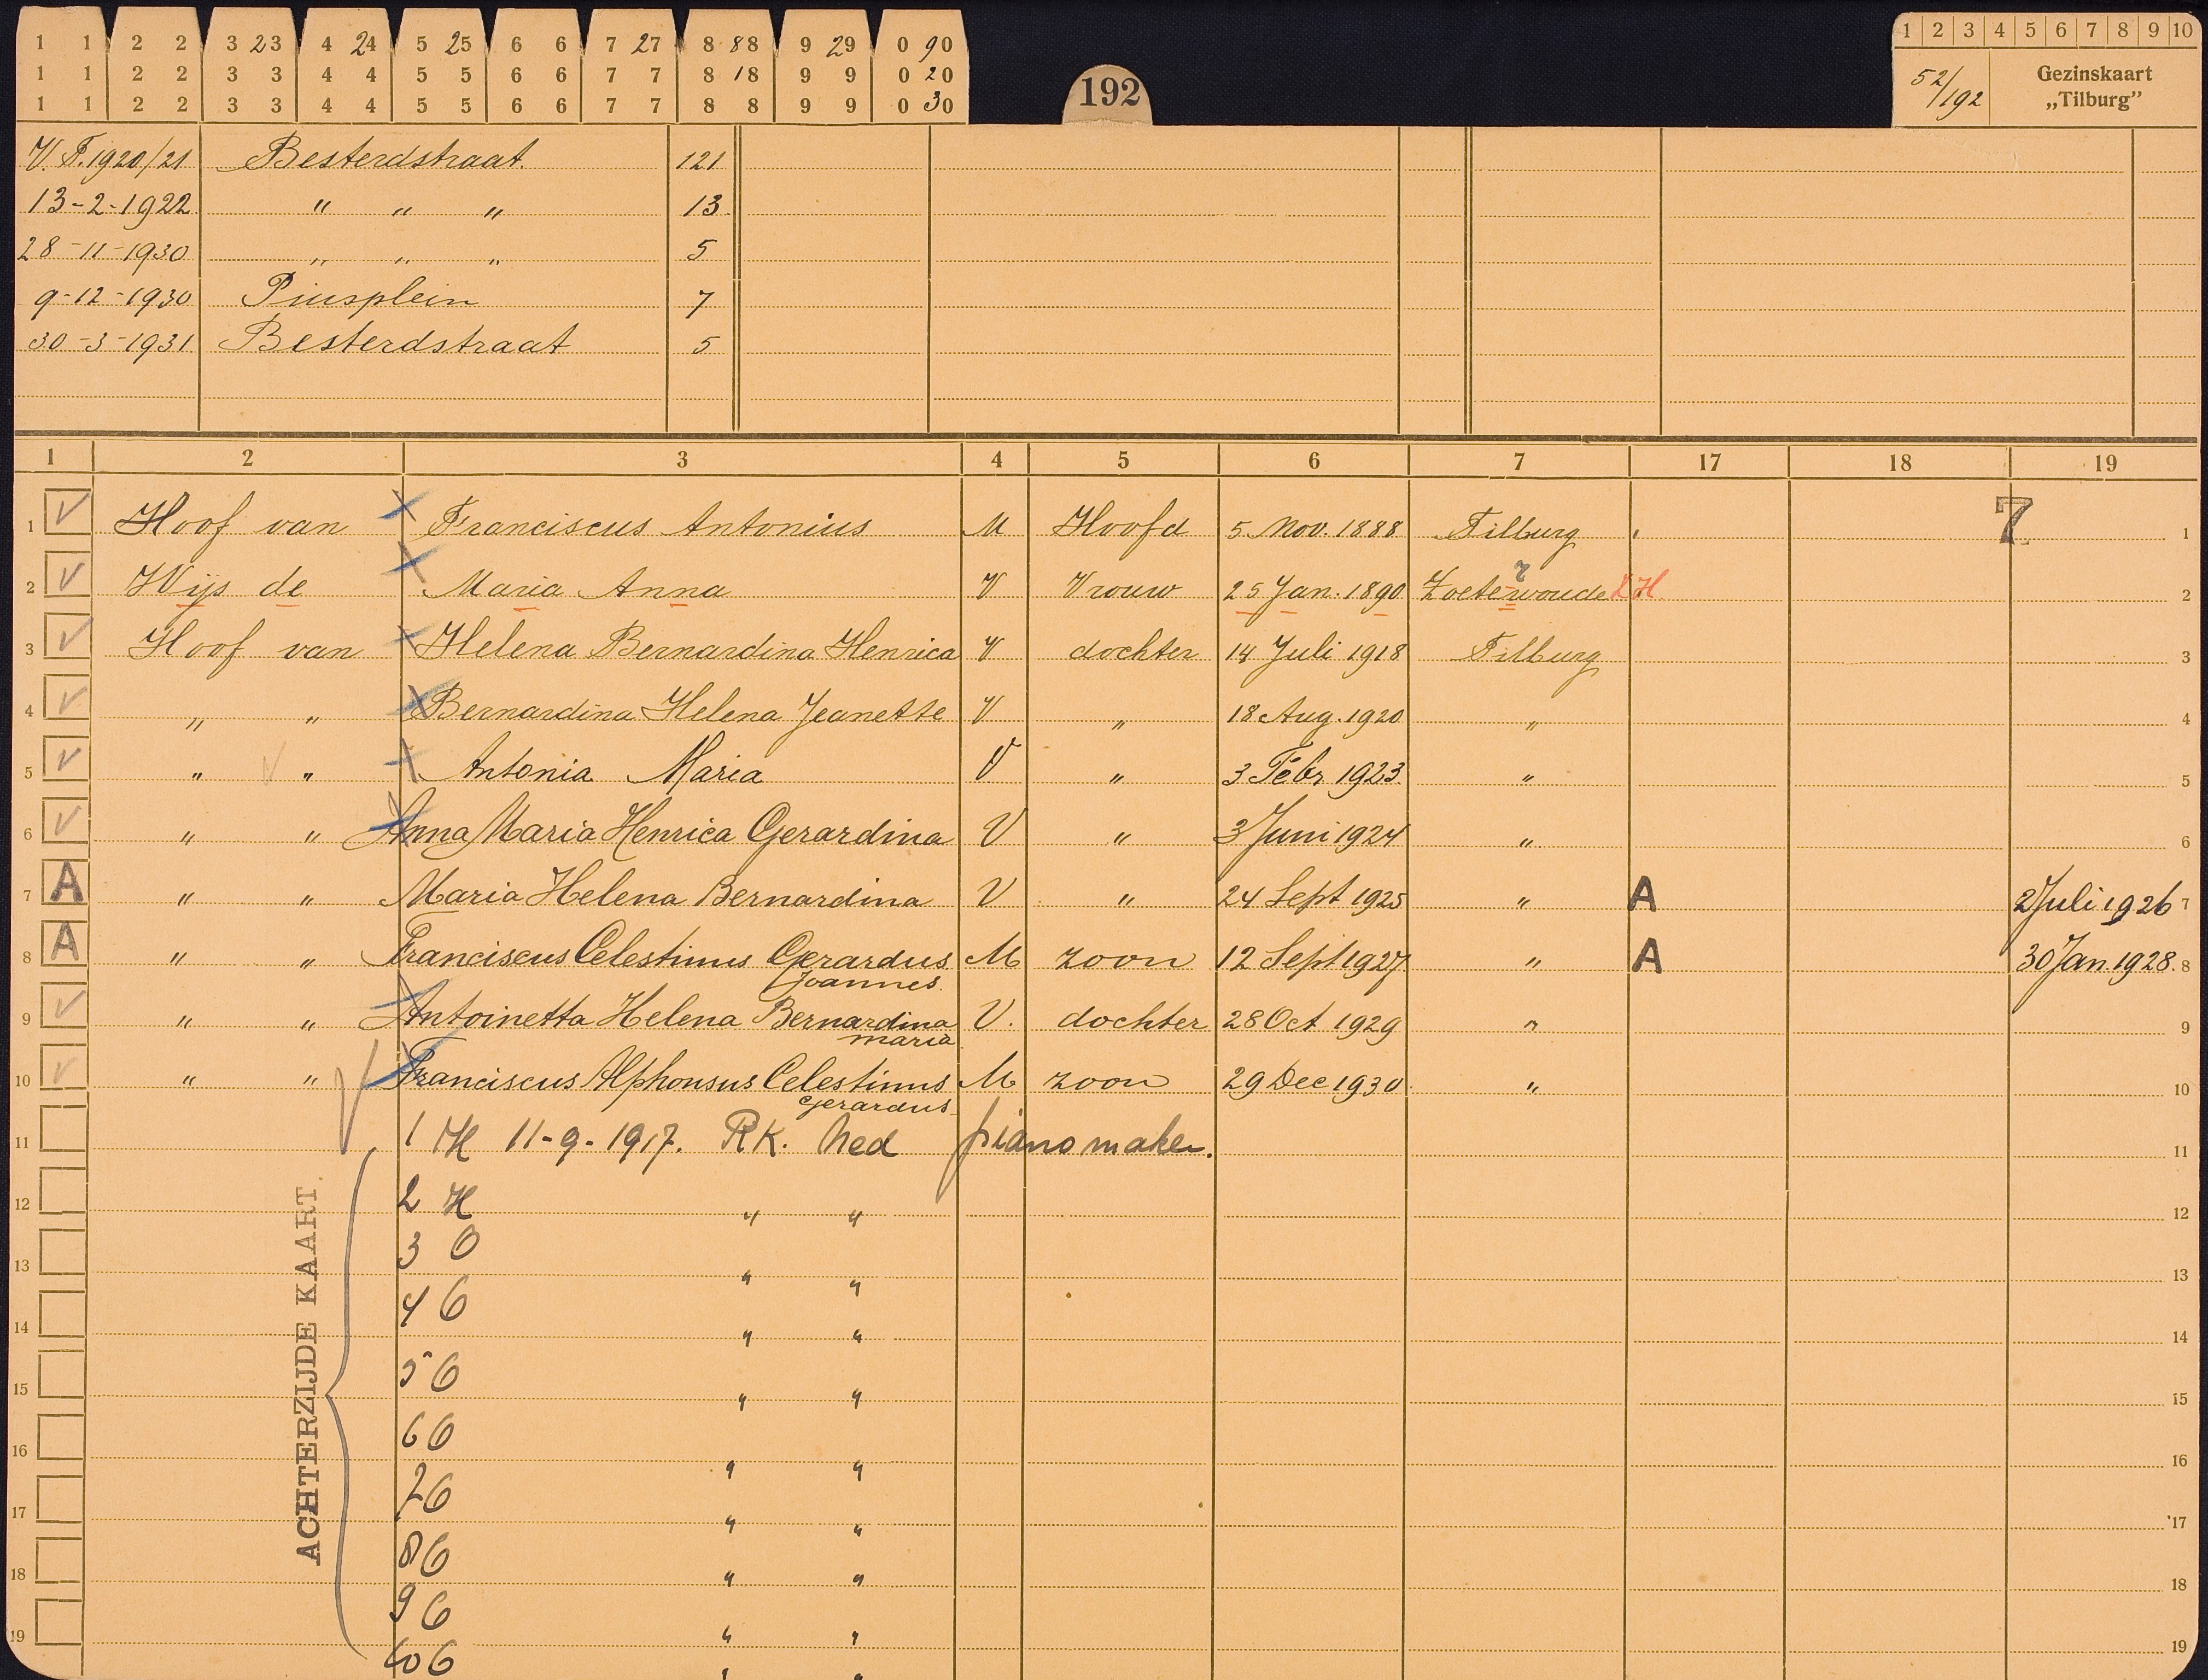 1 1 2 2 3 23 4 24 5 25 6 6 7 27 8 88 9 29 0 90
1 1 2 2 3 3 4 4 5 5 6 6 7 7 8 18 9 9 0 20
1 1 2 2 3 3 4 4 5 5 6 6 7 7 8 8 9 9 0 30
192
1 2 3 4 5 6 7 8 9 10
52/192 Gezinskaart
„Tilburg”
V.T. 1920/21 Besterdstraat. 121
13-2-1922 " " " 13
28-11-1930 " " " 5
9-12-1930 Piusplein 7
30-3-1931 Besterdstraat 5
1 2 3 4 5 6 7 17 18 19
1 V Hoof van Franciscus Antonius M Hoofd 5 Nov. 1888 Tilburg 7 1
2 V Wijs de Maria Anna V Vrouw 25 Jan. 1890 Zoeterwoude ZH 2
3 V Hoof van Helena Bernardina Henrica V dochter 14 Juli 1918 Tilburg 3
4 V " " Bernardina Helena Jeanette V " 18 Aug. 1920 " 4
5 V " " Antonia Maria V " 3 Febr 1923 " 5
6 V " " Anna Maria Henrica Gerardina V " 3 Juni 1924 " 6
7 A " " Maria Helena Bernardina V " 24 Sept 1925 " A 2 Juli 1926 7
8 A " " Franciscus Celestinus Gerardus M zoon 12 Sept 1927 " A 30 Jan. 1928. 8
Joannes.
9 V " " Antoinetta Helena Bernardina V. dochter 28 Oct 1929 " 9
maria
10 V " " Franciscus Alphonsus Celestinus M zoon 29 Dec 1930 " 10
Gerardus
11 1 H 11-9-1917. RK. Ned pianomaker. 11
ACHTERZIJDE KAART.
12 2 H " " 12
13 3 O " " 13
14 4 O " " 14
15 5 O " " 15
16 6 O " " 16
17 7 O " " 17
18 8 O " " 18
19 9 O " " 19
10 O " "